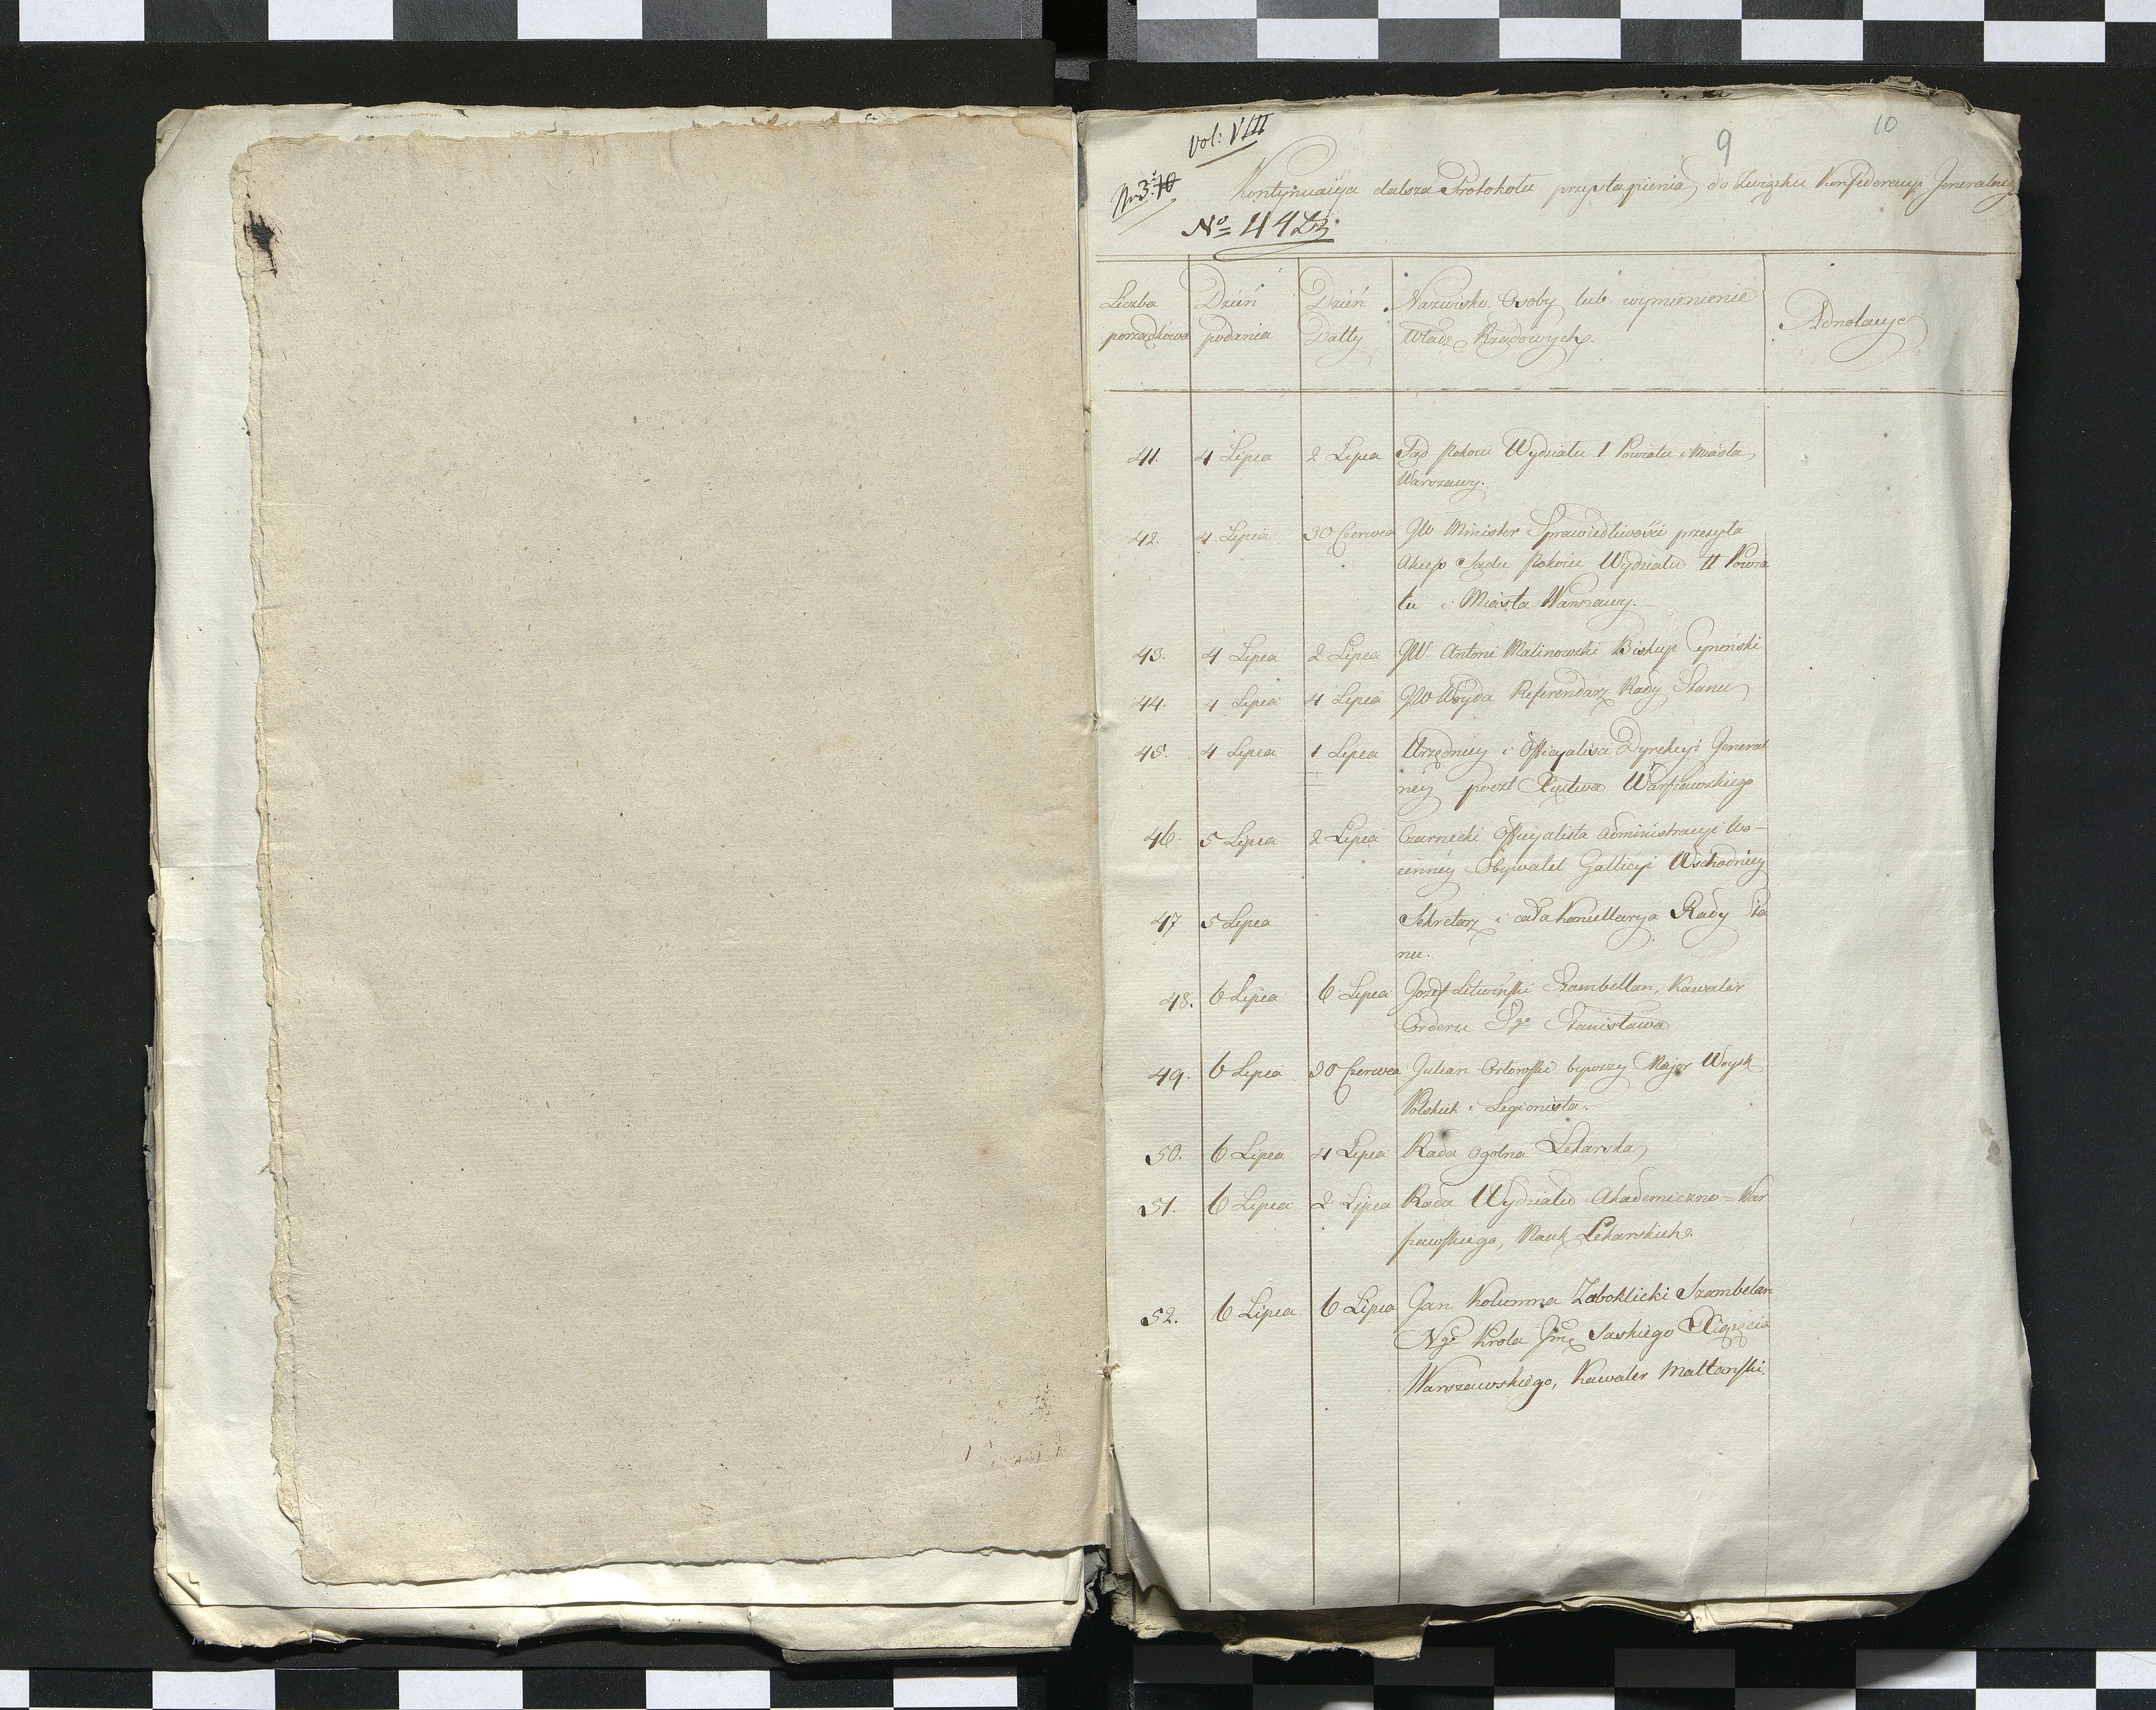 Vol: VIII
9
10
Nr 3.
Kontynuacyja dalsza Protokołu przystąpienia do Związku Konfederacyi Jeneralney
No 44
Liczba porządkowa
Dzień podania
Dzień Datty
Nazwisko Osoby lub wymienienie
Władz Rządowych.
Adnotacye
41. 4 Lipca 2 Lipca Sąd Pokoiu Wydziału I Powiatu i Miasta
Warszawy.
42. 4 Lipca 30 Czerwca JW Minister Sprawiedliwości przesyła
Akces Sądu Pokoiu Wydziału II Powia
tu i Miasta Warszawy.
43. 4 Lipca 2 Lipca JW. Antoni Malinowski Biskup Cyneński
44. 4 Lipca 4 Lipca JW Woyda Referendarz Rady Stanu
45. 4 Lipca 1 Lipca Urzędnicy i Officyaliści Dyrekcyi General
ney poczt Xięstwa Warszawskiego
46. 5 Lipca 2 Lipca Czarnecki Officyalista Administracyi Wo-
ienney Obywatel Gallicyi Wschodniey
47 5 Lipca Sekretarz i cała Kancellarya Rady Sta
nu.
48. 6 Lipca 6 Lipca Jozef Litwiński Szambellan, Kawaler
Orderu Sgo Stanisława
49. 6 Lipca 30 Czerwca Julian bywszy Major Woysk
Polskich i Legionista.
50. 6 Lipca 4 Lipca Rada Ogolna Lekarska
51. 6 Lipca 2 Lipca Rada Wydziału Akademiczno-War
szawskiego, Nauk Lekarskich.
52. 6 Lipca 6 Lipca Jan Kolumna Zaboklicki Szambelan
Ngo Krola Jmę Saskiego Xiążęcia
Warszawskiego, Kawaler Maltański.